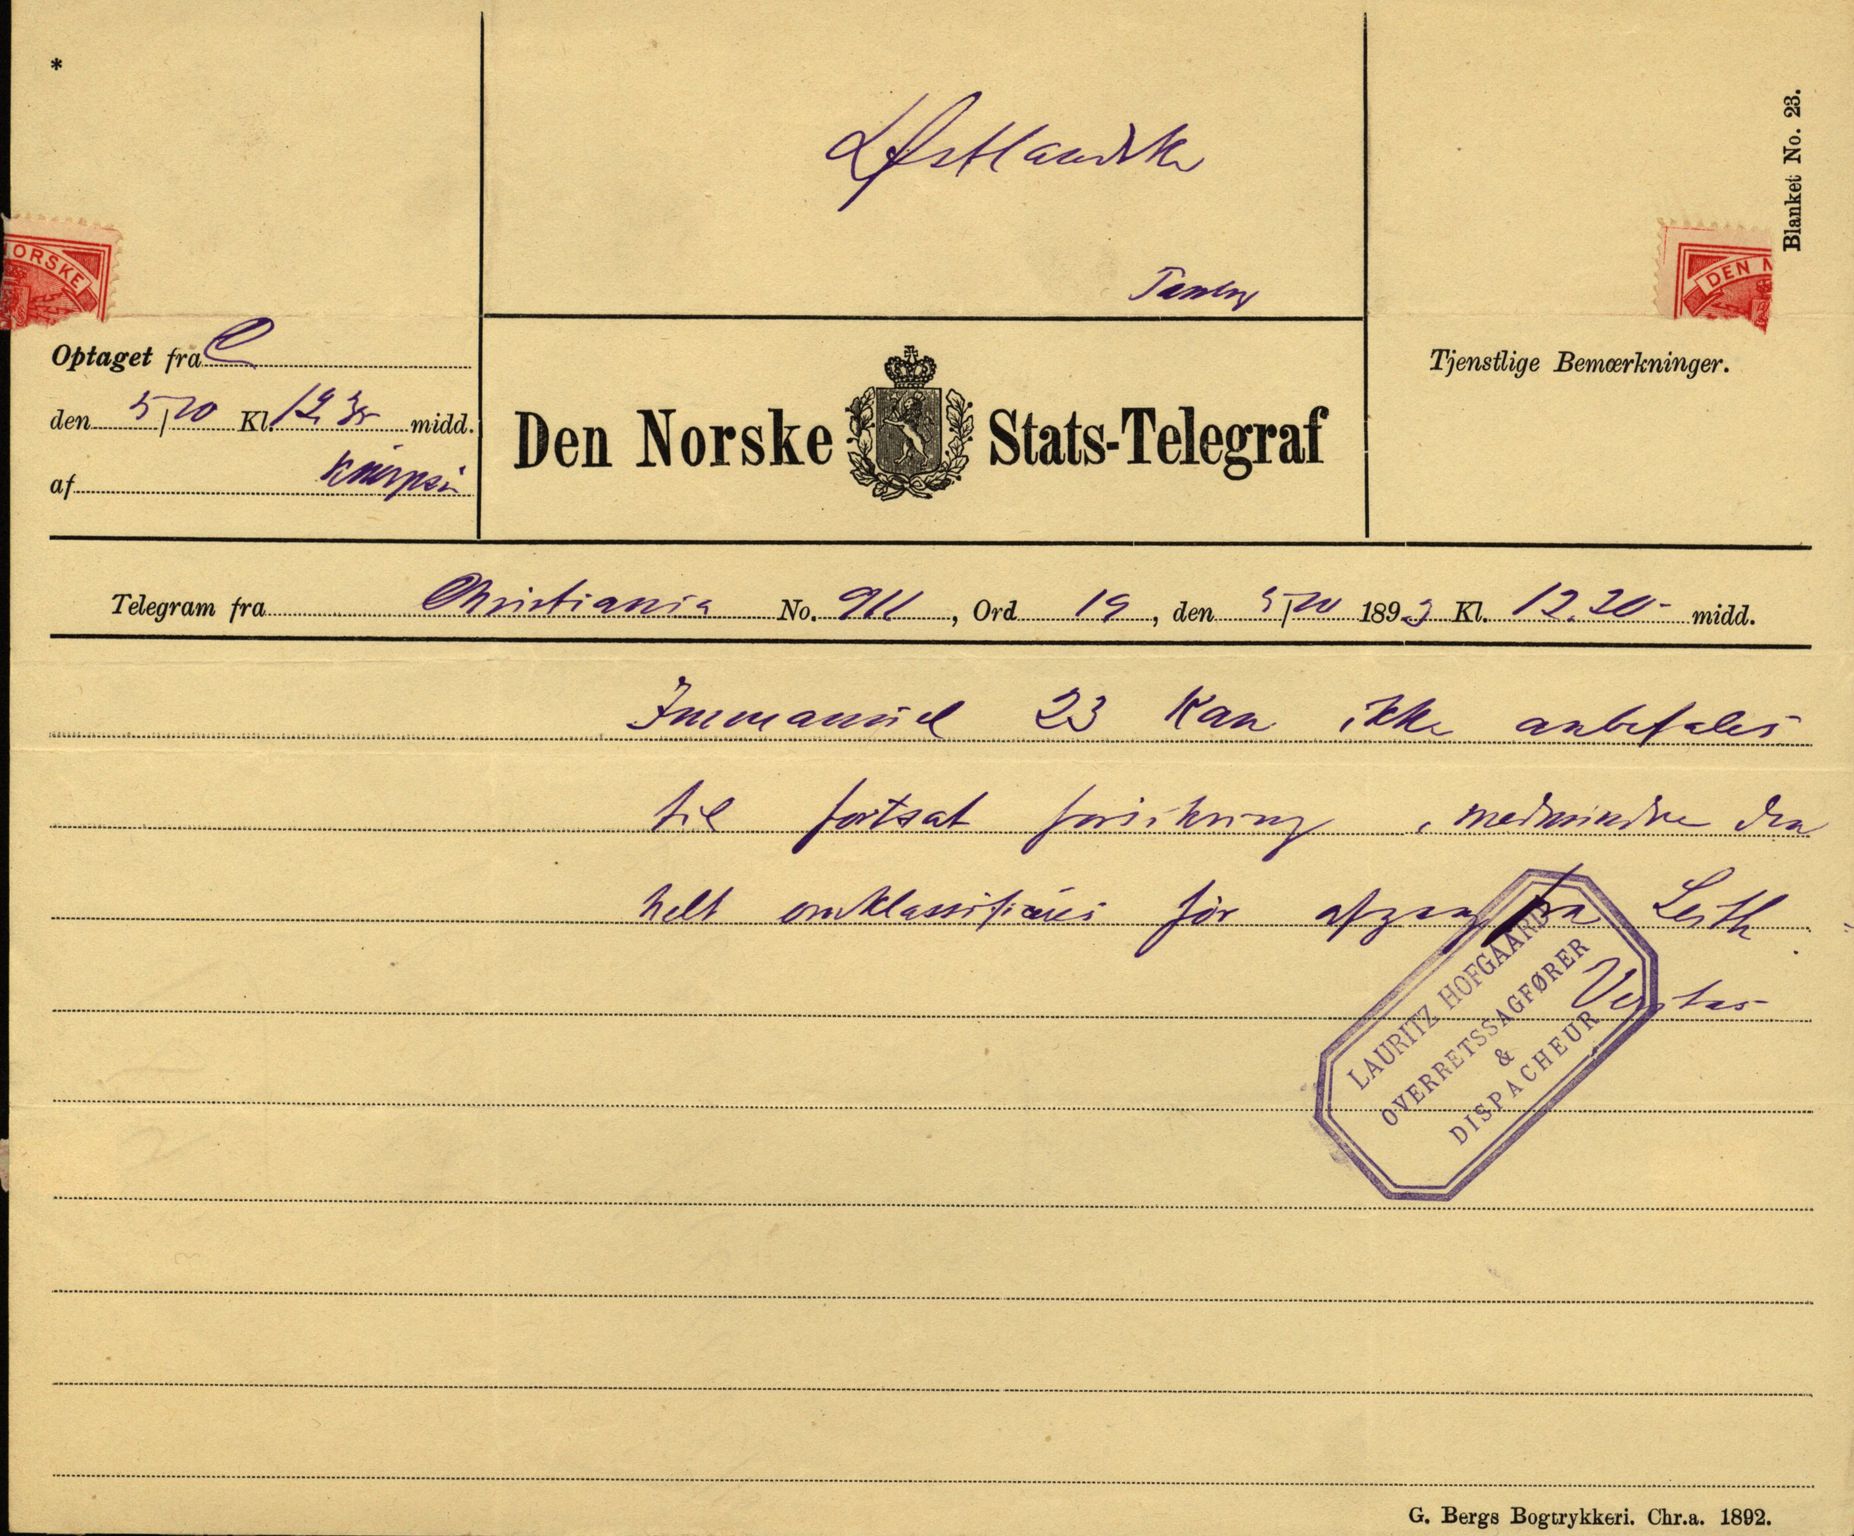 *
Østlandske
Blanket No. 23.
NORSKE
DEN N
Optaget fra C
den 5/10 Kl. 12 35 midd.
af
Den Norske Stats-Telegraf
Tjenstlige Bemærkninger.
Telegram fra Christiania No. 911, Ord 19, den 5/10 1893 Kl. 12.20 midd.
Immanuel 23 Kan ikke anbefales
til fortsat forsikring, medmindre den
helt omklassificeres før afgang fra Leith.
Veritas
LAURITZ HOFGAARD
OVERRETSSAGFØRER
&
DISPACHEUR
G. Bergs Bogtrykkeri. Chr.a. 1892.